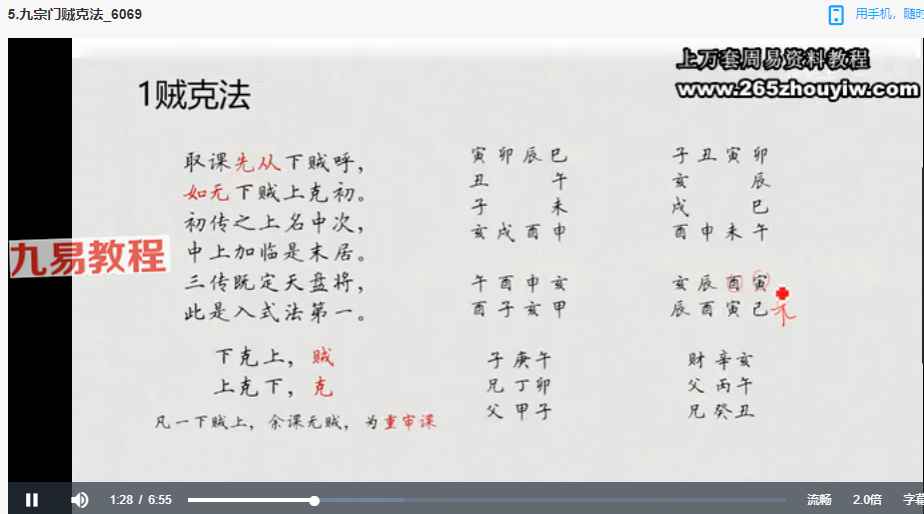 5.九宗门贼克法_6069
用手机，随时
上万套周易资料教程
www.265zhouyiw.com
1贼克法
取课先从下贼呼，
如无下贼上克初。
初传之上名中次，
中上加临是末居。
三传既定天盘将，
此是入式法第一。
下克上，贼
上克下，克
凡一下贼上，余课无贼，为重审课
九易教程
寅卯辰巳
丑 午
子 未
亥戌酉申
午酉申亥
酉子亥甲
子庚午
兄丁卯
父甲子
子丑寅卯
亥 辰
戌 巳
酉申未午
亥辰酉寅
辰酉寅己
财辛亥
父丙午
兄癸丑
1:28 / 6:55
流畅
2.0倍
字幕